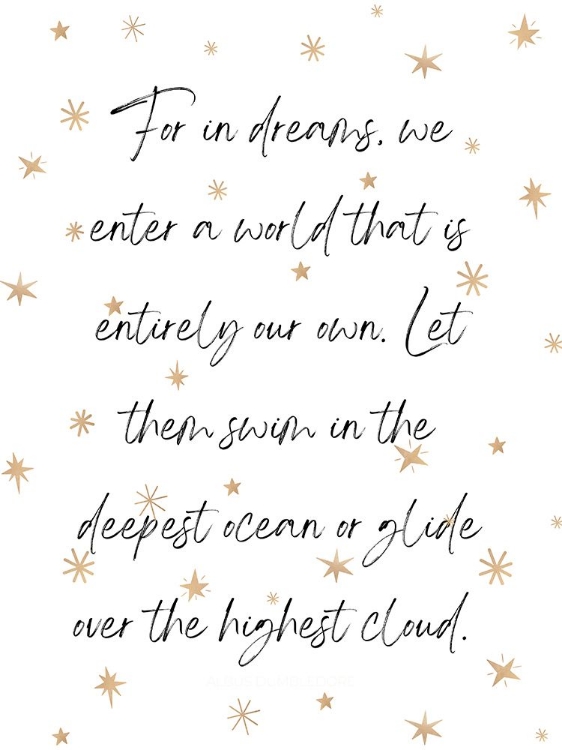 For in dreams, we
enter a world that is
entirely our own. Let
them swim in the
deepest ocean or glide
over the highest cloud.